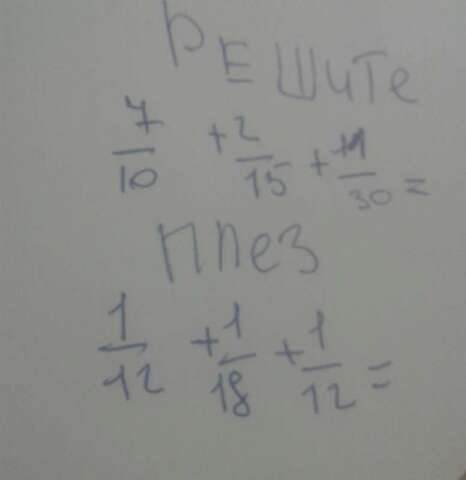 РЕШИТЕ
7/10 + 2/15 + 11/30 =
ПЛЕЗ
1/12 + 1/18 + 1/12 =